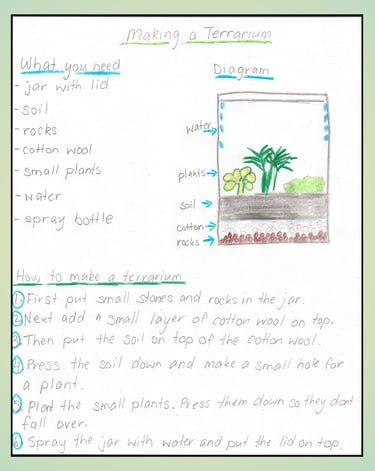 Making a Terrarium
What you need
- jar with lid
- soil
- rocks
- cotton wool
- small plants
- water
- spray bottle
Diagram
water
plants
soil
cotton
rocks
How to make a terrarium
1. First put small stones and rocks in the jar.
2. Next add a small layer of cotton wool on top.
3. Then put the soil on top of the cotton wool.
4. Press the soil down and make a small hole for
a plant.
5. Plant the small plants. Press them down so they dont
fall over.
6. Spray the jar with water and put the lid on top.